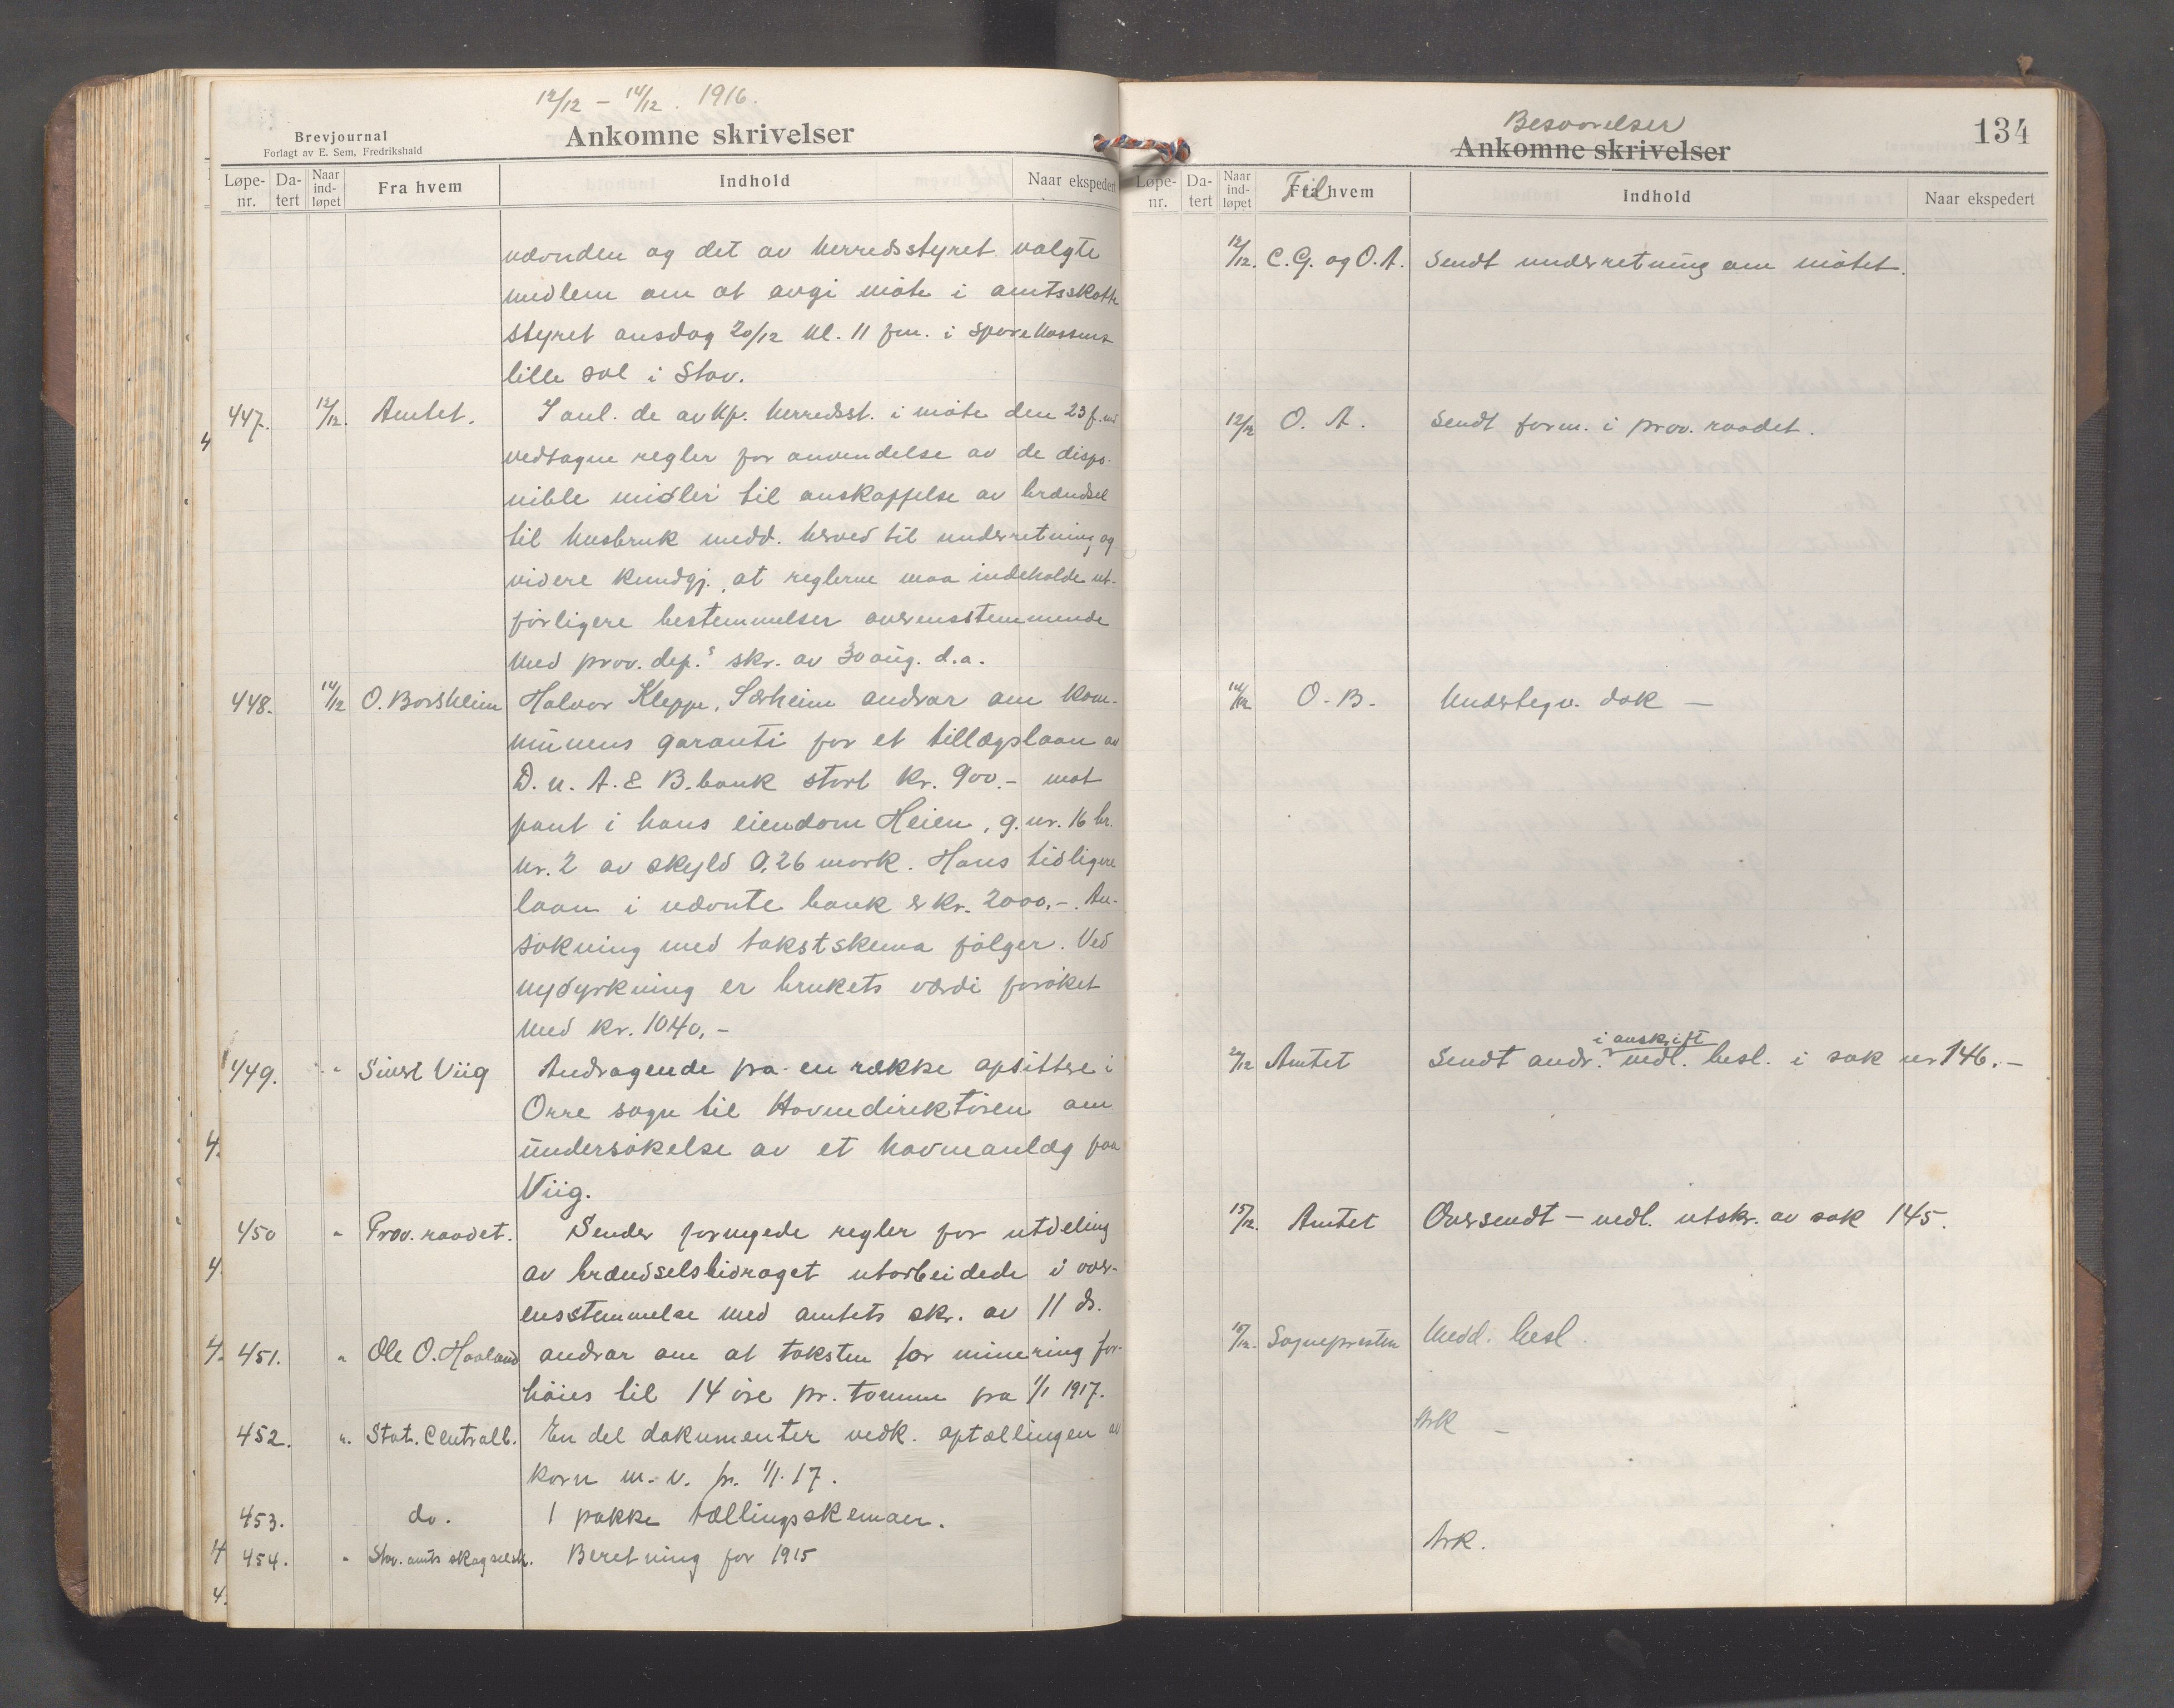 12/12 – 14/12. 1916.
Brevjournal
Forlagt av E. Sem, Fredrikshald
Ankomne skrivelser
Løpe-nr. Da-tert Naar ind-løpet Fra hvem Indhold Naar ekspedert
nævnden og det av herredsstyret valgte
medlem om at avgi møte i amtsskatte
styret onsdag 20/12 kl. 11 fm. i sparekassens
lille sal i Stav.
447. 12/12. Amtet. I anl. de av Kp. herredsst. i møte den 23 f. md
vedtagne regler for anvendelse av de dispo-
nible midler til anskaffelse av brændsel
til husbruk medd. herved til underretning og
videre kundgj., at reglerne maa indeholde ut-
førligere bestemmelser overensstemmende
med prov. dep.s skr. av 30 aug. d.a.
448. 14/12 O. Borsheim Halvor Kleppe, Særheim andrar om kom-
munens garanti for et tillægslaan av
D. n. A. & B. bank stort kr. 900.- mot
pant i hans eiendom Heien, g.nr. 16 br.
nr. 2 av skyld 0,26 mark. Hans tidligere
laan i nævnte bank er kr. 2000.-. An-
søkning med takstskema følger. Ved
nydyrkning er brukets værdi forøket
med kr. 1040,-
449. " Sivert Viig Andragende fra en række opsittere i
Orre sogn til Havnedirektøren om
undersøkelse av et havneanlæg paa
Viig.
450 " Prov. raadet. Sender fornyede regler for utdeling
av brændselsbidraget utarbeidede i over-
ensstemmelse med amtets skr. av 11 ds.
451. " Ole O. Haaland andrar om at taksten for minering for-
høies til 14 øre pr. tomme fra 1/1 1917.
452. " Stat. Centralb. En del dokumenter vedk. optællingen av
korn m. v. pr. 1/1. 17.
453. do. 1 pakke tællingsskemaer.
454. " Stav. amts skogselsk. Beretning for 1915
Besvarelser
Ankomne skrivelser
134
Løpe-nr. Da-tert Naar ind-løpet Fra hvem Til Indhold Naar ekspedert
12/12. C. G. og O. A. Sendt underretning om møtet.
12/12 O. A. Sendt form. i prov. raadet.
14/12 O. B. Undertegn. dok –
i avskrift
2/12 Amtet Sendt andr. vedl. besl. i sak nr 146. –
15/12. Amtet Oversendt – vedl. utskr. av sak 145.
15/12. Sognepresten Medd. besl.
Ark –
Ark.